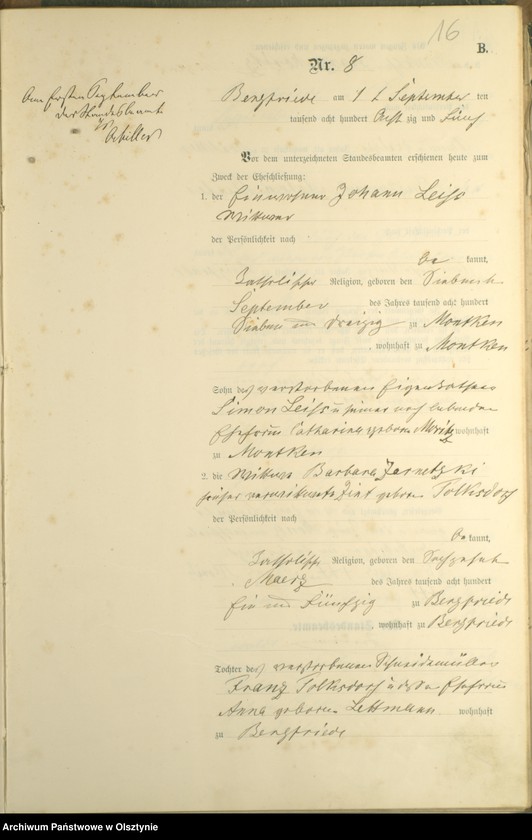 16
B.
Nr. 8
Am ersten September
der Standesbeamte
Schiller
Bergfriede am 1 t September ein
tausend acht hundert Acht zig und Fünf
Vor dem unterzeichneten Standesbeamten erschienen heute zum
Zweck der Eheschließung:
1. der Einwohner Johann Leiss
Wittwer
der Persönlichkeit nach
be kannt,
katholischer Religion, geboren den Siebenten
September des Jahres tausend acht hundert
Sieben und dreizig zu Montken
, wohnhaft zu Montken
Sohn des verstorbenen Eigenkäthner
Simon Leiss u seiner noch lebenden
Ehefrau Catharina geborne Moritz wohnhaft
zu Montken
2. die Wittwe Barbara
früher verwittwete geborne Tolksdorf
der Persönlichkeit nach
be kannt,
katholischer Religion, geboren den
Maerz des Jahres tausend acht hundert
Ein und Fünfzig zu Bergfriede
, wohnhaft zu Bergfriede
Tochter des verstorbenen Schneidemüller
Franz Tolksdorf u dessen Ehefrau
Anna geborne Lettmann wohnhaft
zu Bergfriede
Archiwum Państwowe w Olsztynie